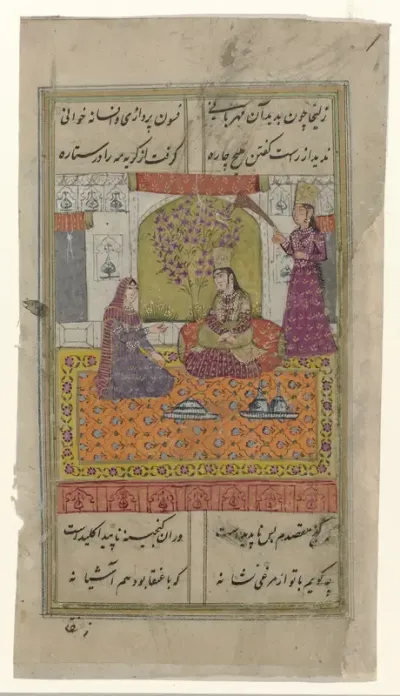 زلیخا چون بدید آن مهربانی فسون پردازی و افسانه خوانی
ندید از راست گفتن هیچ چاره گرفت از گریه مه را در ستاره
گنج مقصدم بس ناپدیدست در ان گنجینه ناپیدا کلیدست
چه گویم با تو از مرغی نشانه که با عنقا بود هم آشیانه
ز عنقا